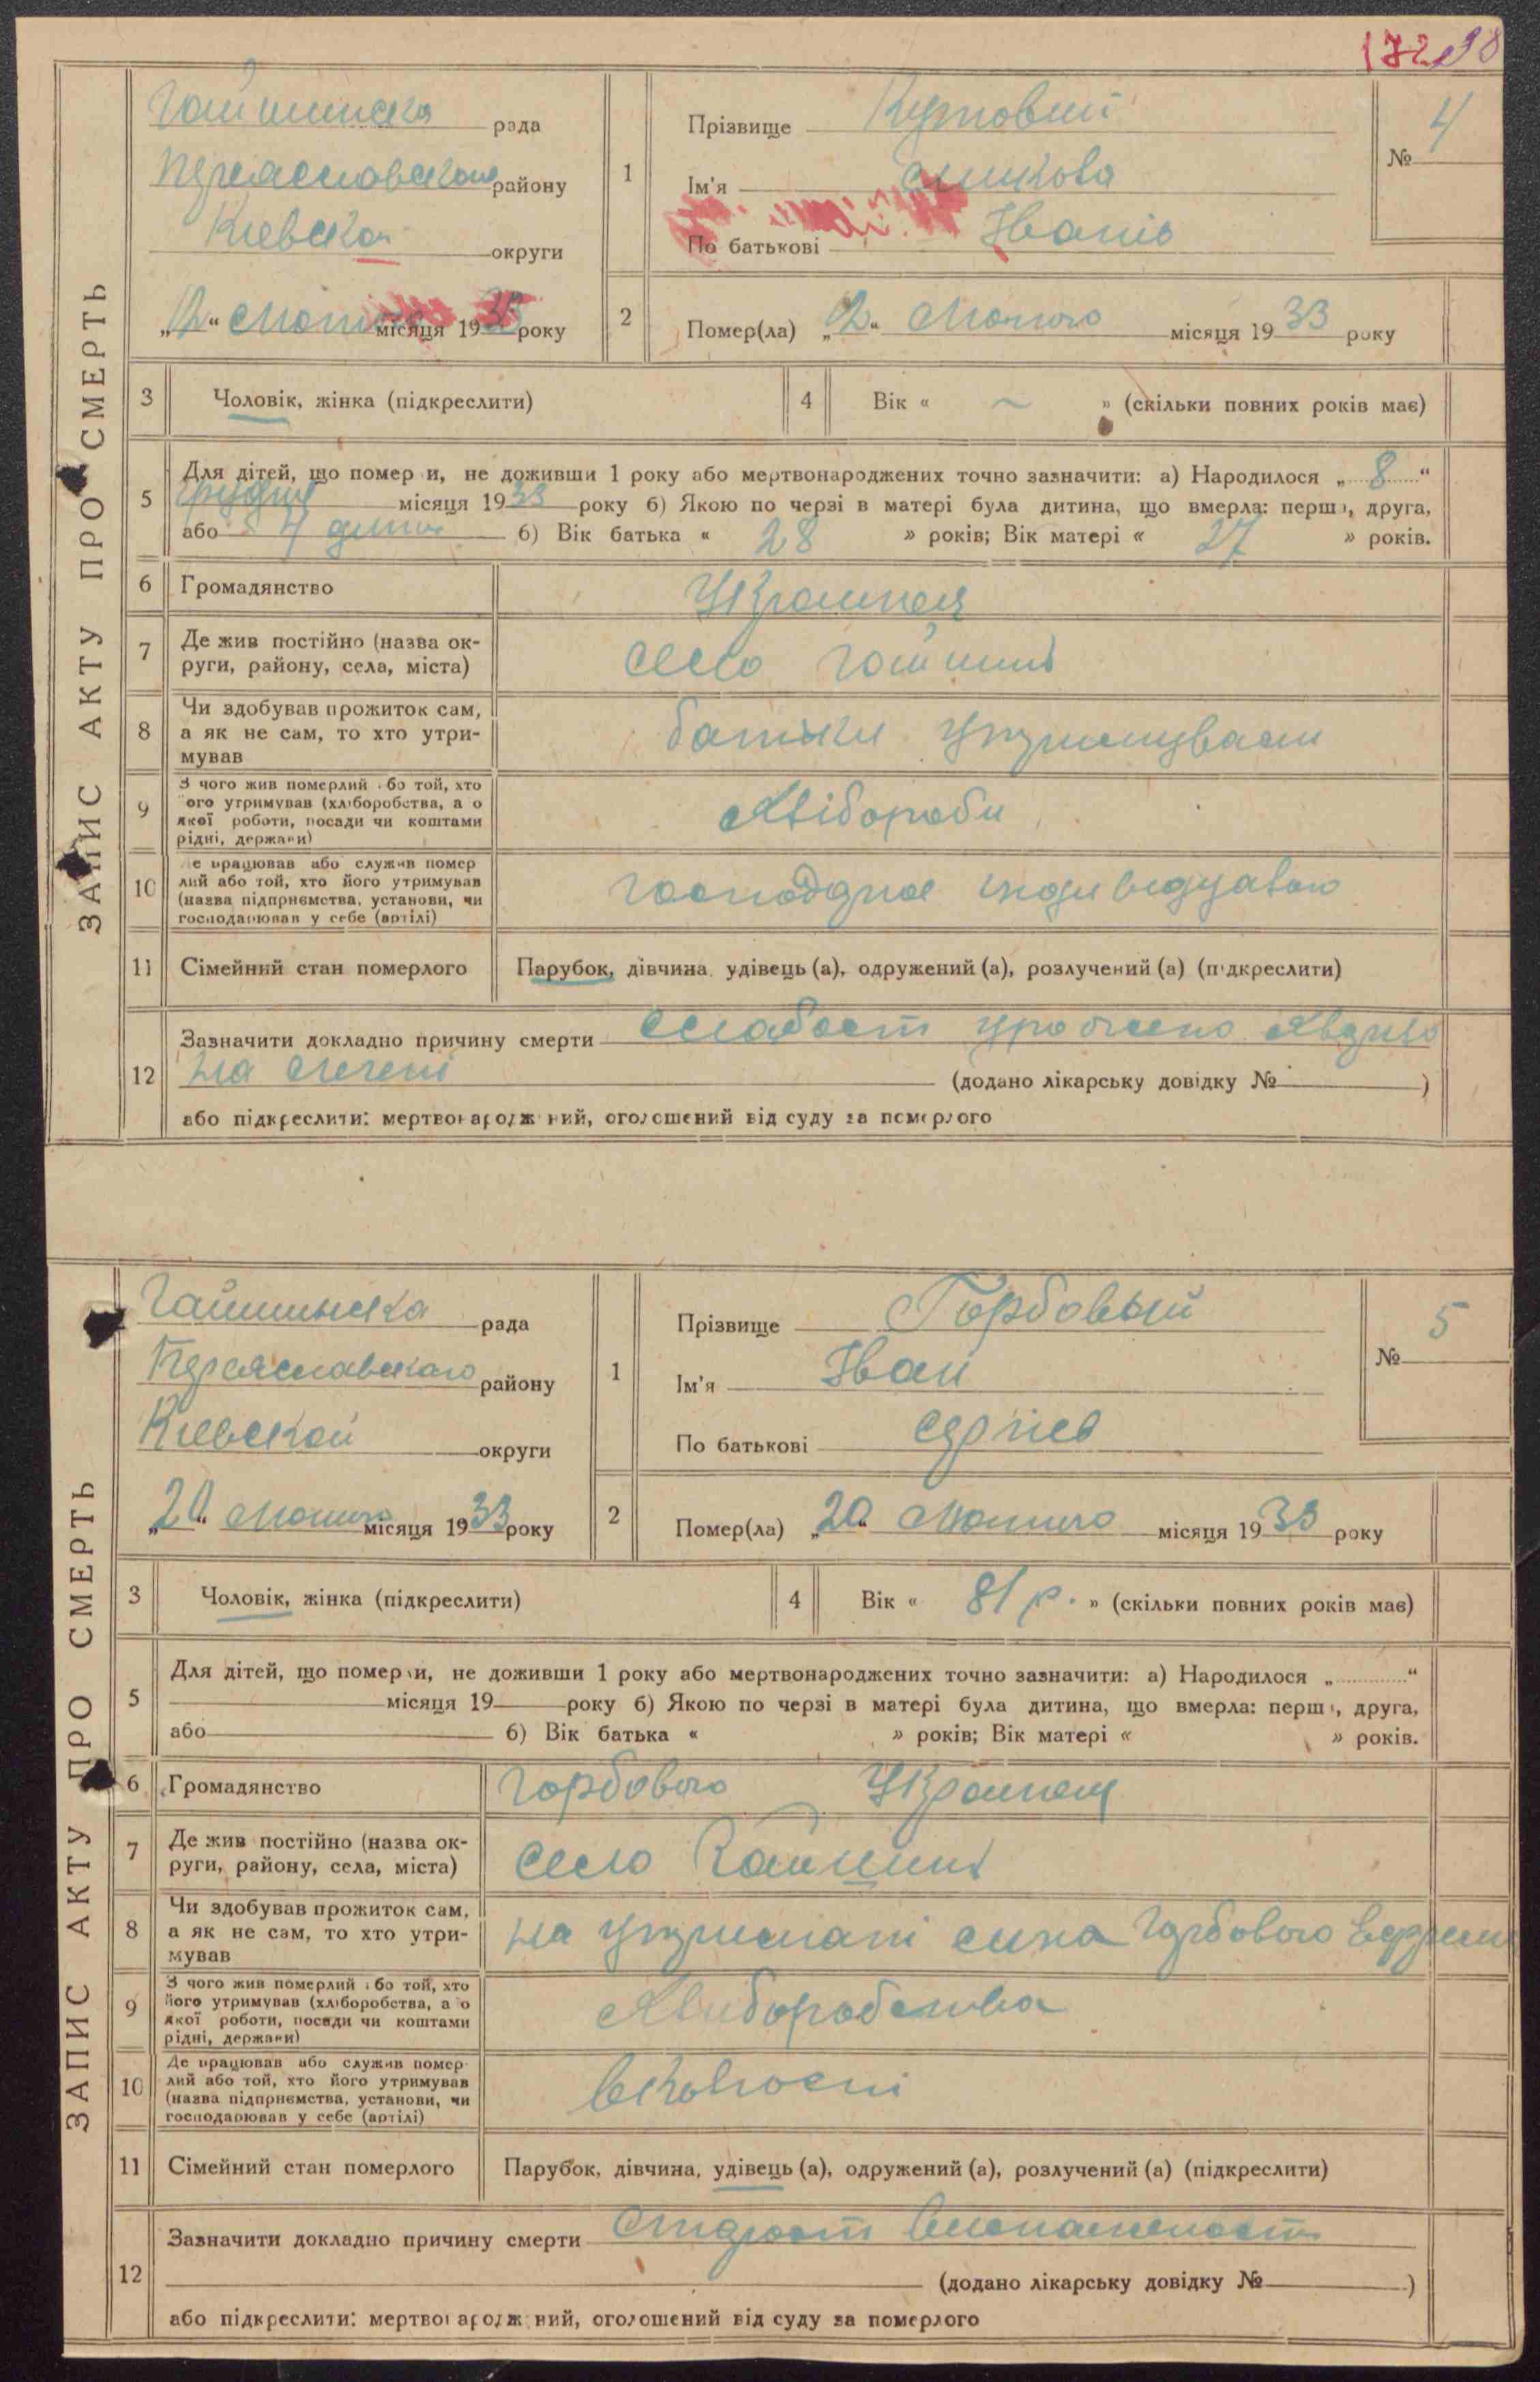 172 98
ЗАПИС АКТУ ПРО СМЕРТЬ
Гайшинска рада
Переяславского району
Киевской округи
„12“ Лютого місяця 1933 року
1
Прізвище
Ім'я
По батькові Іванів
№ 4
2
Помер(ла) „12“ Лютого місяця 1933 року
3 Чоловік, жінка (підкреслити)
4 Вік « ~ » (скільки повних років має)
5 Для дітей, що померли, не доживши 1 року або мертвонароджених точно зазначити: а) Народилося „8“
грудня місяця 1933 року б) Якою по черзі в матері була дитина, що вмерла: перша, друга,
або 4 дитина б) Вік батька « 28 » років; Вік матері « 27 » років.
6 Громадянство Украинец
7 Де жив постійно (назва ок-
руги, району, села, міста) село Гайшинъ
8 Чи здобував прожиток сам,
а як не сам, то хто утри-
мував
батьки утримували
9 З чого жив померлий або той, хто
його утримував (хліборобства, або
якої роботи, посади чи коштами
рідні, держави)
Хлібороби
10 Де працював або служив помер
лий або той, хто його утримував
(назва підприємства, установи, чи
господарював у себе (артілі)
11 Сімейний стан померлого Парубок, дівчина, удівець (а), одружений (а), розлучений (а) (підкреслити)
12 Зазначити докладно причину смерти
(додано лікарську довідку № )
або підкреслити: мертвонароджений, оголошений від суду за померлого
ЗАПИС АКТУ ПРО СМЕРТЬ
Гайшинска рада
Переяславского району
Киевской округи
„20“ Лютого місяця 1933 року
1
Прізвище Горбовый
Ім'я Іван
По батькові Сергіев
№ 5
2
Помер(ла) „20“ Лютого місяця 1933 року
3 Чоловік, жінка (підкреслити)
4 Вік « 81 р. » (скільки повних років має)
5 Для дітей, що померли, не доживши 1 року або мертвонароджених точно зазначити: а) Народилося „ “
місяця 19 року б) Якою по черзі в матері була дитина, що вмерла: перша, друга,
або б) Вік батька « » років; Вік матері « » років.
6 Громадянство Горбового Украинец
7 Де жив постійно (назва ок-
руги, району, села, міста) село Гайшинъ
8 Чи здобував прожиток сам,
а як не сам, то хто утри-
мував
на утримані сина Горбового
9 З чого жив померлий або той, хто
його утримував (хліборобства, або
якої роботи, посади чи коштами
рідні, держави)
Хлиборобства
10 Де працював або служив помер
лий або той, хто його утримував
(назва підприємства, установи, чи
господарював у себе (артілі)
11 Сімейний стан померлого Парубок, дівчина, удівець (а), одружений (а), розлучений (а) (підкреслити)
12 Зазначити докладно причину смерти
(додано лікарську довідку № )
або підкреслити: мертвонароджений, оголошений від суду за померлого